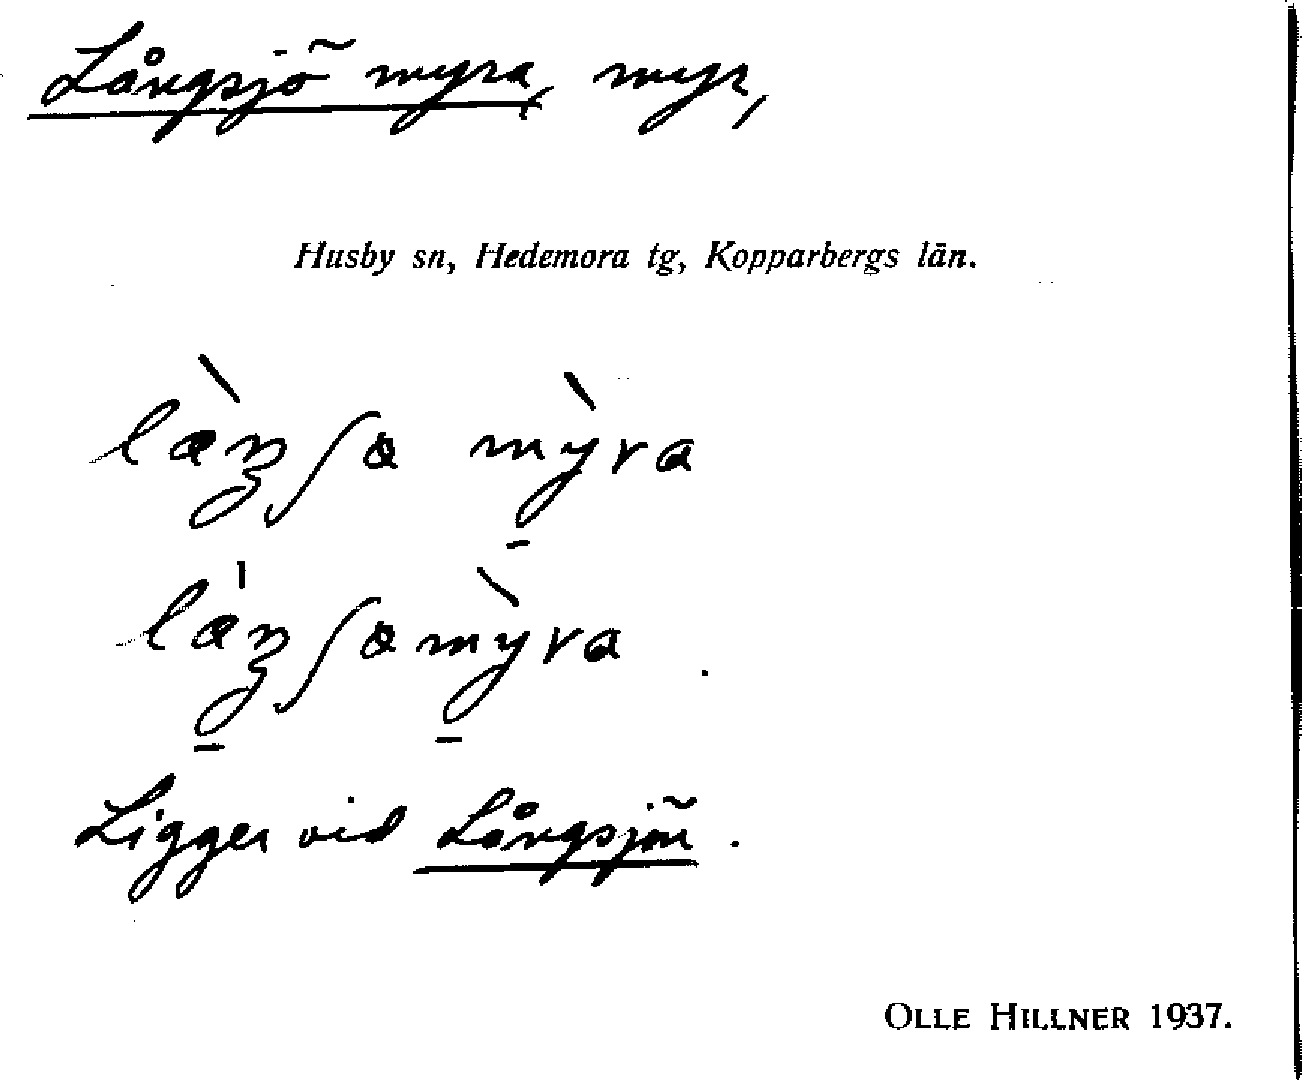 Långsjö myra, myr,
Husby sn, Hedemora tg, Kopparbergs län.
Ligger vid Långsjön.
OLLE HILLNER 1937.